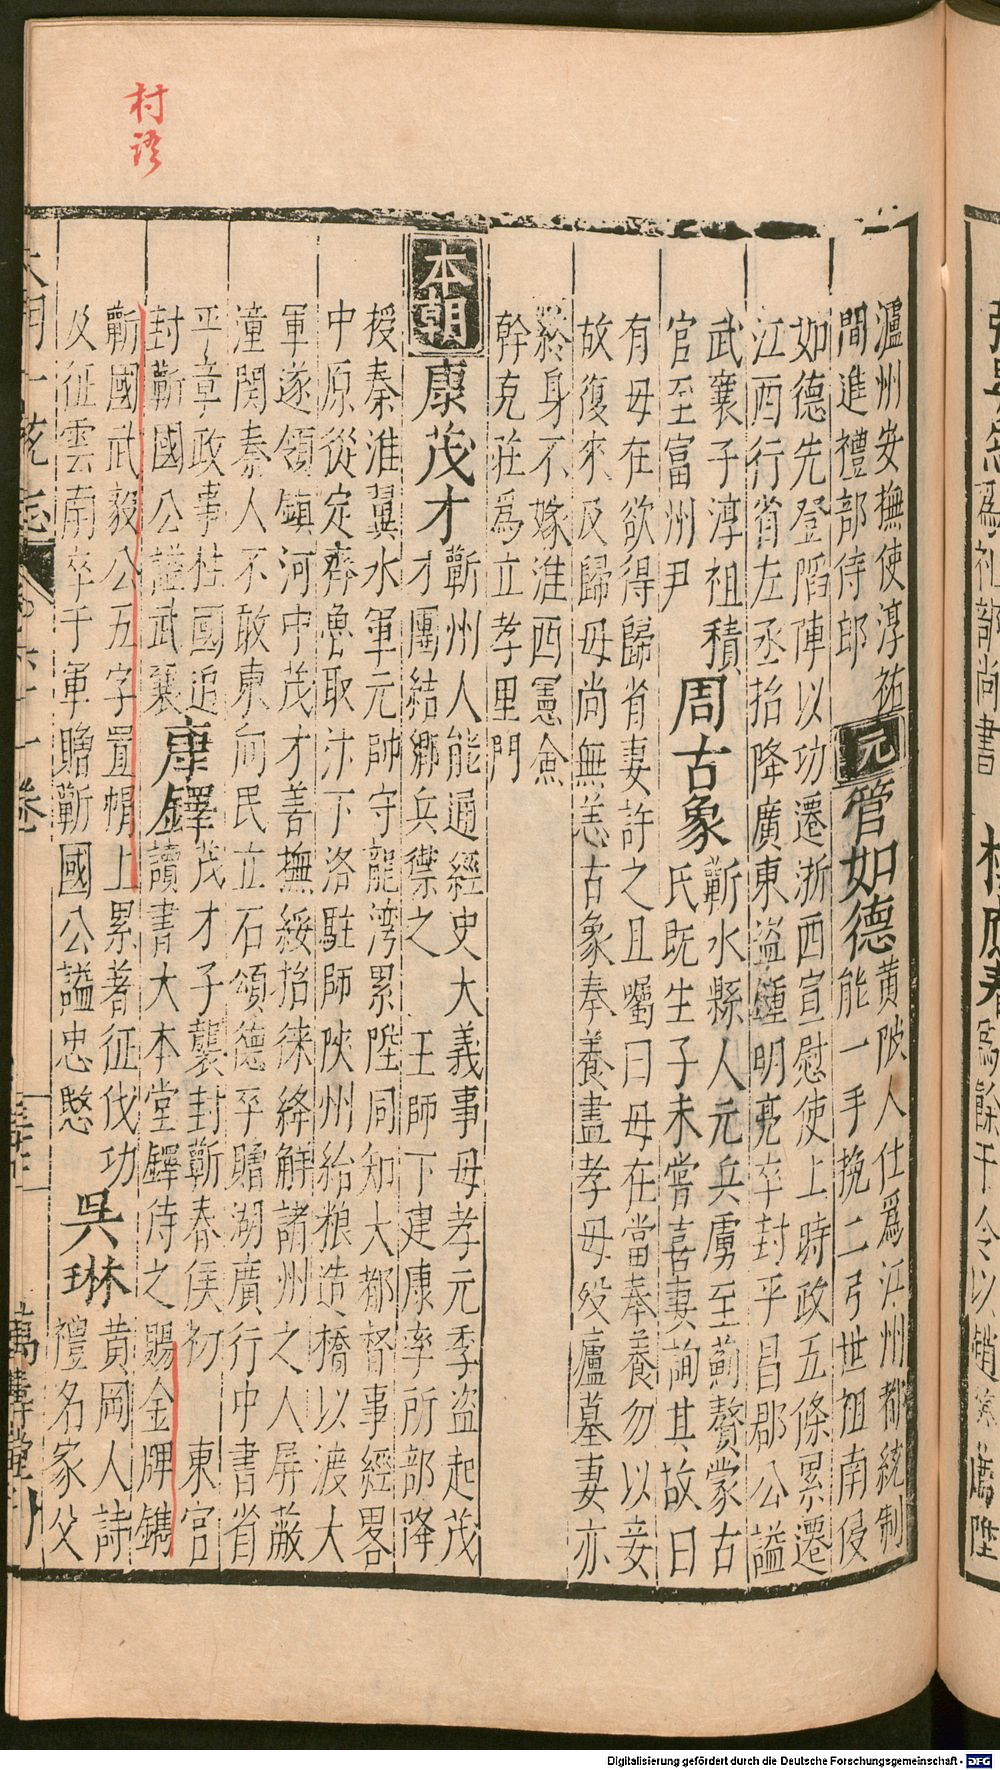 村語
瀘州安撫使淳祐
間進禮部侍郎
元
管如德
黃陂人仕為江州都統制
能一手挽二弓世祖南侵
如德先登陷陣以功遷浙西宣慰使上時政五條累遷
江西行省左丞招降廣東盜鍾明亮卒封平昌郡公諡
武襄子淳祖積
官至富州尹
周古象
蘄水縣人元兵虜至薊贅蒙古
氏既生子未嘗喜妻詢其故曰
有母在欲得歸省妻許之且囑曰母在當奉養勿以妾
故復來及歸母尚無恙古象奉養盡孝母歿廬墓妻亦
終身不嫁淮西憲僉
幹克莊為立孝里門
本朝
康茂才
蘄州人能通經史大義事母孝元季盜起茂
才團結鄉兵禦之 王師下建康率所部降
授秦淮翼水軍元帥守龍灣累陞同知大都督事經畧
中原從定齊魯取汴下洛駐師陝州給粮造橋以渡大
軍遂領鎮河中茂才善撫綏招徠絳解諸州之人屏蔽
潼関秦人不敢東向民立石頌德卒贈湖廣行中書省
平章政事柱國追
封蘄國公諡武襄
康鐸
茂才子襲封蘄春侯初 東官
讀書大本堂鐸侍之賜金牌鐫
蘄國武毅公五字置帽上累著征伐功
及征雲南卒于軍贈蘄國公諡忠愍
吳琳
黃岡人詩
禮名家父